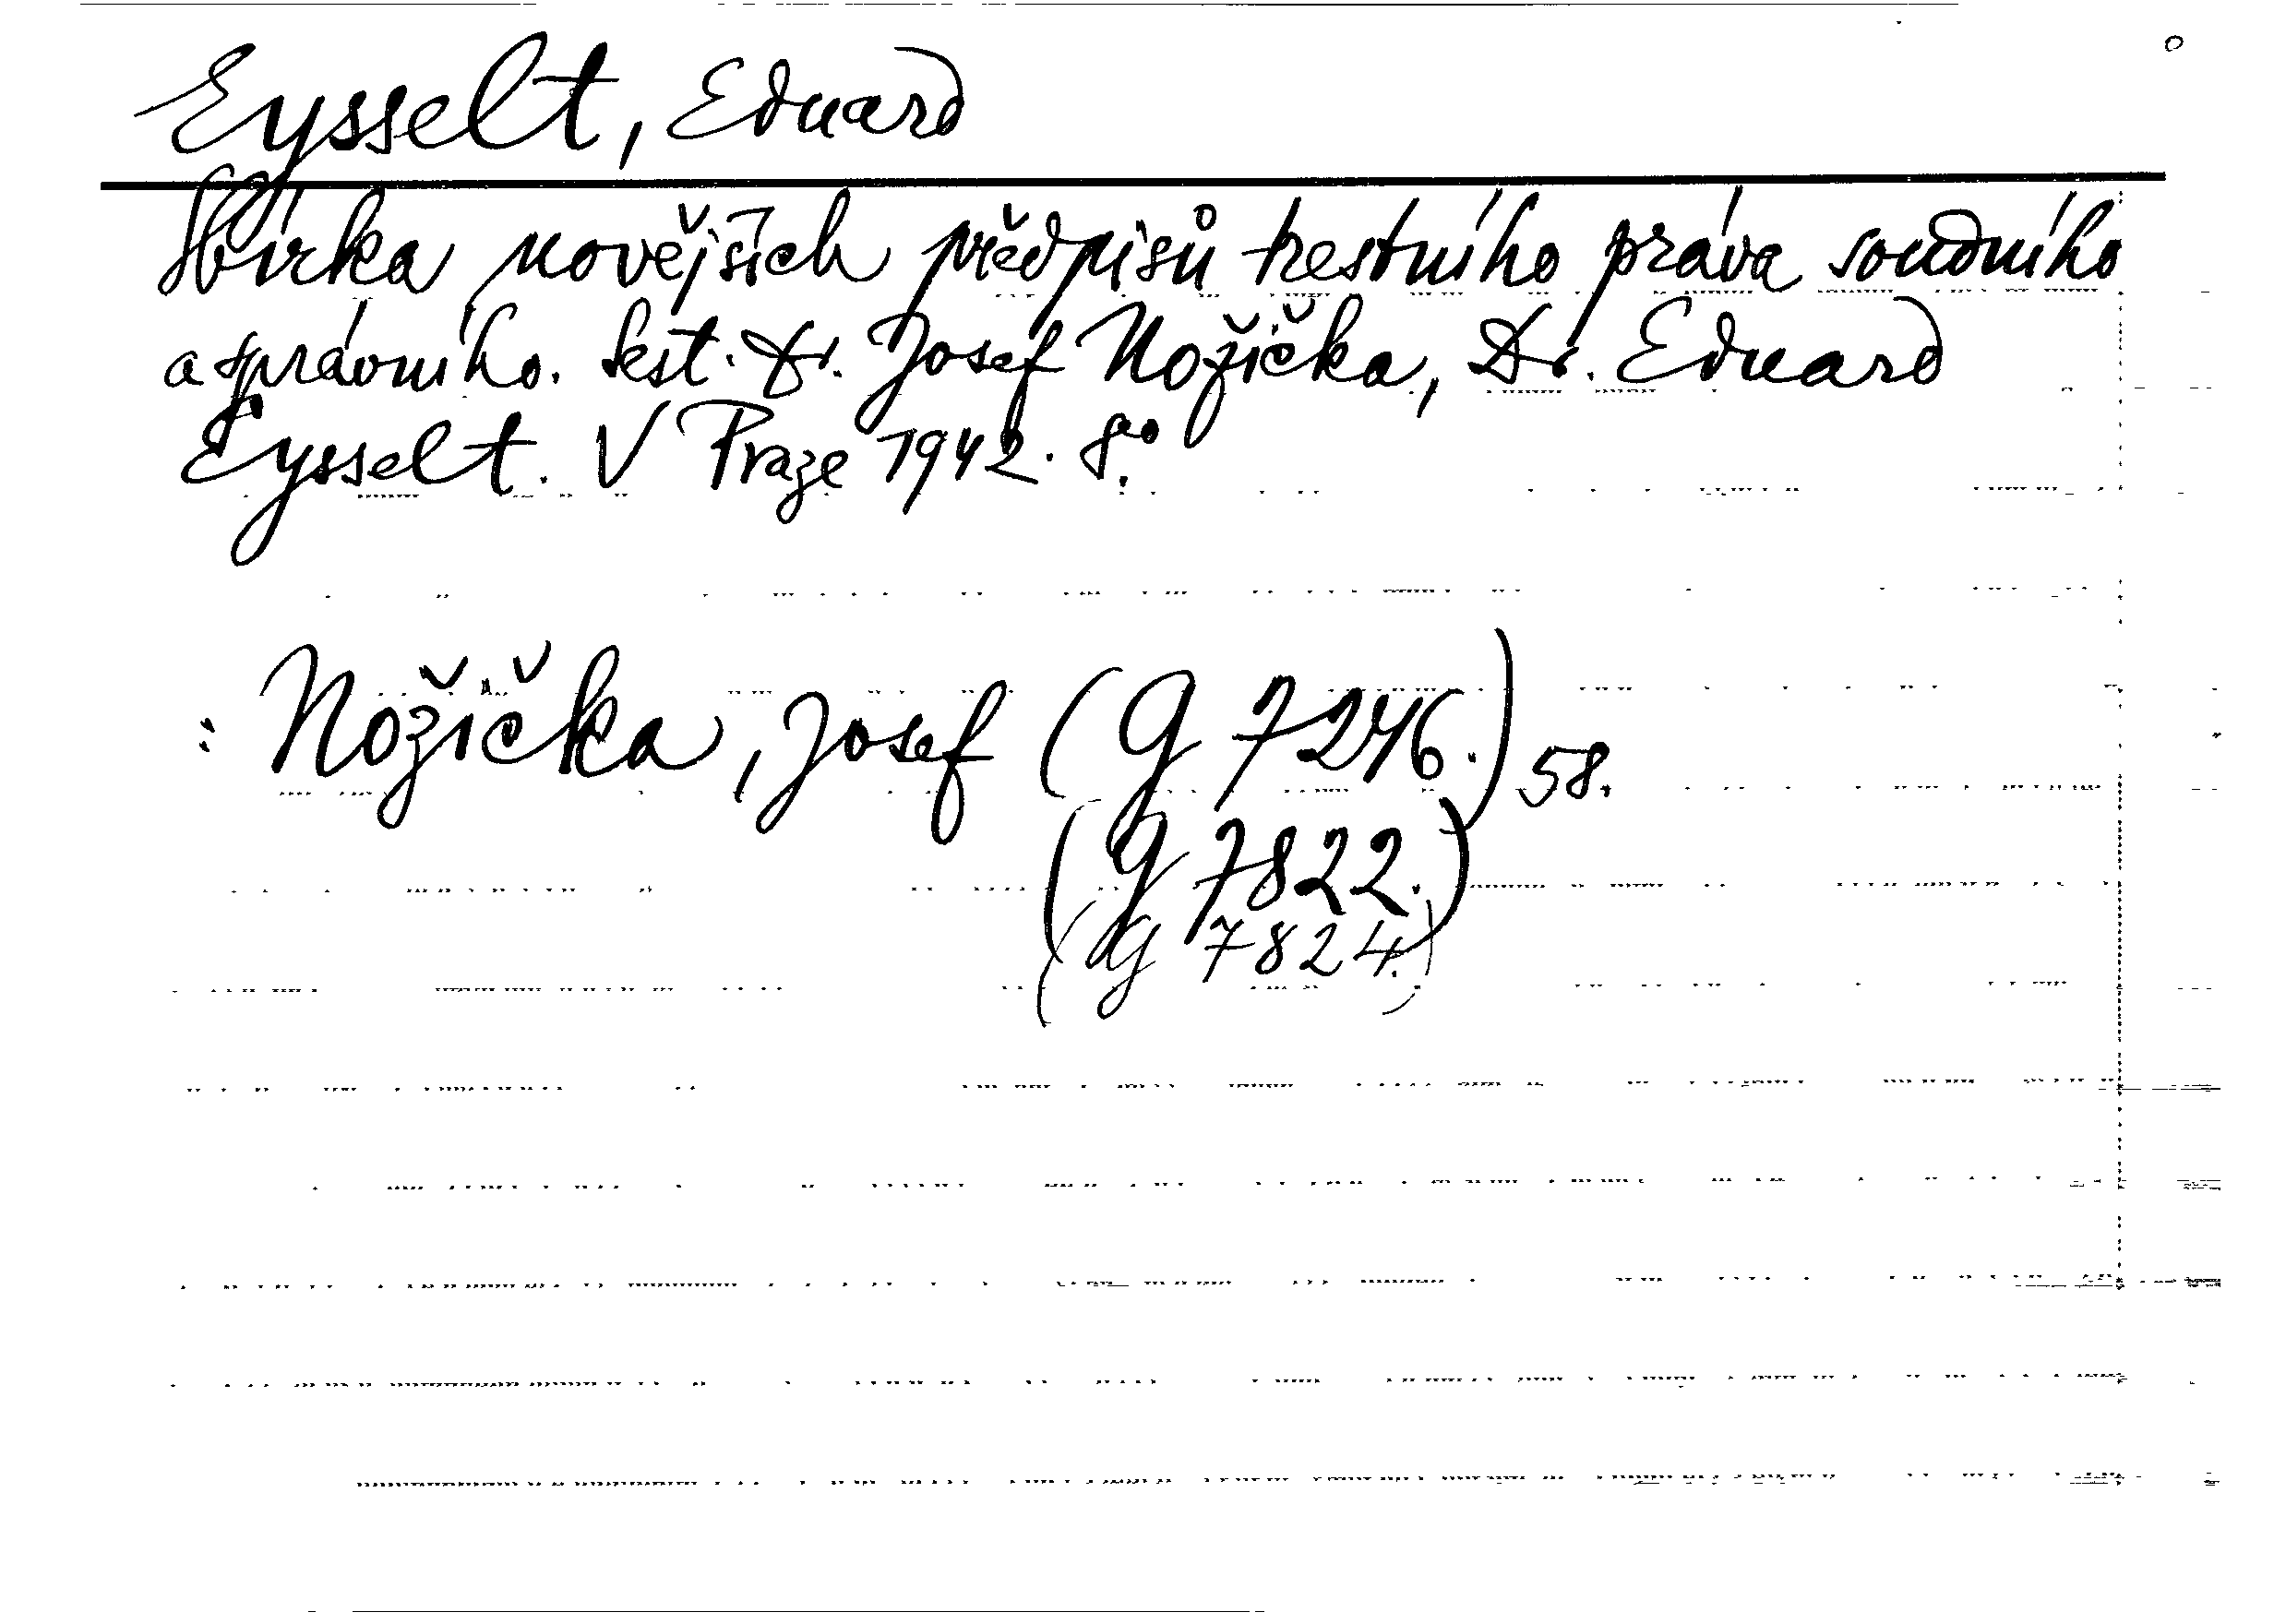 Eysselt, Eduard
Sbírka novějších předpisů trestního práva soudního
a správního. Sest. Dr. Josef Nožička, Dr. Eduard
Eysselt. V Praze 1942. 8.°
: Nožička, Josef (G 7246.) 58.
(G 7822.)
(G 7824.)